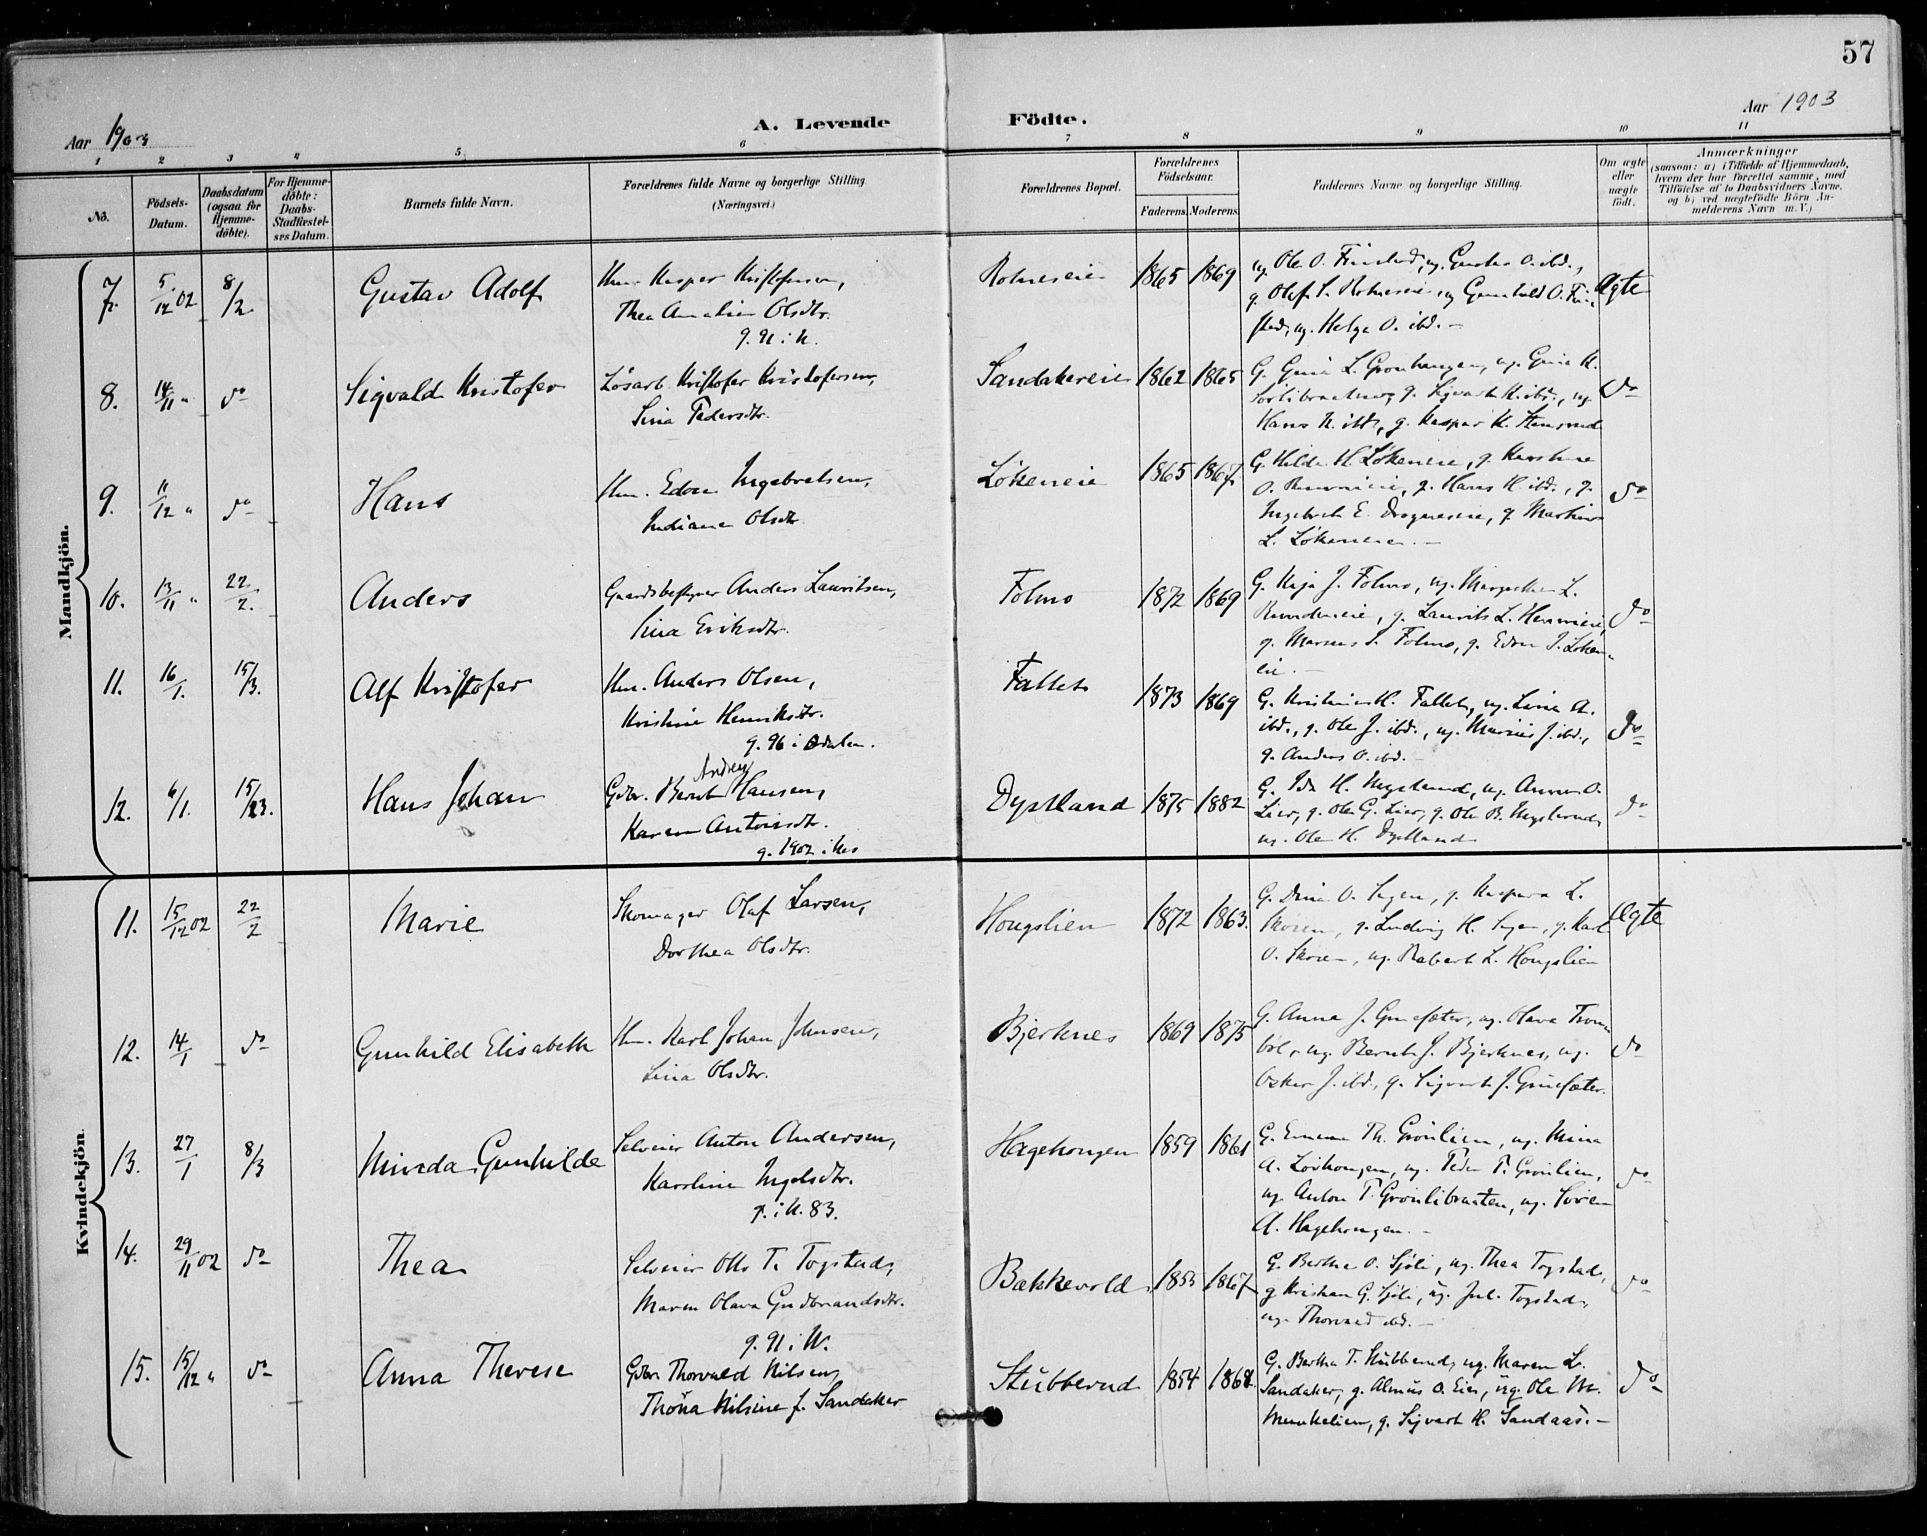 57
Aar 1903
A. Levende
Födte.
Aar 1903
1 2 3 4 5 6 7 8 9 10 11
No.
Födsels-
Datum.
Daabsdatum
(ogsaa for
Hjemme-
döbte).
For Hjemme-
döbte:
Daabs-
Stadfæstel-
ses Datum.
Barnets fulde Navn.
Forældrenes fulde Navne og borgerlige Stilling
(Næringsvei.)
Forældrenes Bopæl.
Forældrenes
Födselsaar.
Faderens Moderens
Faddernes Navne og borgerlige Stilling.
Om ægte
eller
uægte
födt.
Anmærkninger
(saasom: a) i Tilfælde af Hjemmedaab,
hvem der har forrettet samme, med
Tilföielse af to Daabsvidners Navne,
og b) ved uægtefödte Börn An-
melderens Navn m. V.)
Mandkjön.
7. 5/12 02 8/2 Gustav Adolf
Hm. Kasper Kristofersen,
Thea Amalia Olsdtr.
g. 91 i N.
Rotneseie 1865 1869
ug. Ole O. Finstad, ug. Gusta O. ibd.,
g. Olaf S. Rotneseie, ug Gunhild O. Fin-
stad, ug. Helga O. ibd. –
Ægte
8. 14/11 " do Sigvald Kristofer
Lösarb. Kristofer Kristofersen,
Lina Pedersdtr.
Sandakereie 1862 1865
G. Gina L. Gronhaugen, ug. Gina K.
g. Sigvart K. ibd., ug.
Hans N. ibd., g. Kaspar K. Stensrud
do
9. 11/12 " do Hans
Hm. Edvin Ingebretsen,
Indiana Olsdtr.
Lökeneie 1865 1867
G. Hilda H. Lökeneie, g. Karoline
O. g. Hans H. ibd., g.
Ingebret E. g. Martin
L. Lökeneie. –
do
10. 13/11 " 22/2. Anders
Gaardsbestyrer Anders Lauritsen,
Lina Eriksdtr.
Folmo 1872 1869
G. Kaja J. Folmo, ug. Margrethe L.
g. Laurits L.
g. Marius J. Folmo, g. Edvin J. Löken-
eie. –
do
11. 16/1. 15/3. Alf Kristofer
Hm. Anders Olsen,
Kristine Henriksdtr.
g. 96 i Odalen.
Fallet 1873 1869
G. Kristine H. Fallet, ug. Lina A.
ibd., g. Ole J. ibd., ug. Marius J. ibd.,
g. Anders O. ibd. –
do
12. 6/1. 15/3. Hans Johan
Gbr. Bernt Andreas Hansen,
Karen Antonsdtr.
g. 1902 i Nes
Dystland 1875 1882
G. Ida H. Nystuend, ug. Anna O.
Lier, g. Ole G. Lier, g. Ole B.
ug. Ole H. Dystland
do
Kvindekjön.
11. 15/12 02 22/2 Marie
Skomager Olaf Larsen,
Dorthea Olsdtr.
Hougslien 1872 1863.
G. Dina O. g. Kaspara L.
Moren, g. Ludvig H. g. Karl
O. ug. Robert L. Hougslien
Ægte
12. 14/1 do Gunhild Elisabeth
Hm. Karl Johan Johnsen,
Lina Olsdtr.
Bjerknes 1869 1875
G. Anna J. Grinesæter, ug. Olava Trom-
böl, ug. Bernt J. Bjerknes, ug.
Osker J. ibd., g. Sigvart J. Grinesæter.
do
13. 27/1 8/3 Minda Gunhilde
Selveier Anton Andersen,
Karoline Ingelsdtr.
g. i N. 83.
Hagehougen 1859 1861
G. Emma Th. Grönlien, ug. Mina
A. Lövhougen, ug. Peder P. Grönlien,
ug. Anton P. Grönlibraaten, ug. Sören
A. Hagehougen. –
do
14. 29/11 02 do Thea
Selveier Otto T. Togstad,
Maren Olava Gudbrandsdtr.
g. 91 i N.
Bækkevold 1855 1867
G. Berthe O. Sjöli, ug. Thea Togstad,
g Kristian G. Sjöli, ug. Jul. Togstad,
ug. Thorvald ibd. –
do
15. 15/12 " do Anna Therese
Gbr. Thorvald Nilsen,
Thöra Nilsine f. Sandaker
Stubberud 1854 1868
G. Bertha T. Stubberud, ug. Maren L.
Sandaker, g. Almus O. Eier, ug. Ole M.
Munkelien, g. Sigvart H. Sandaas. –
do